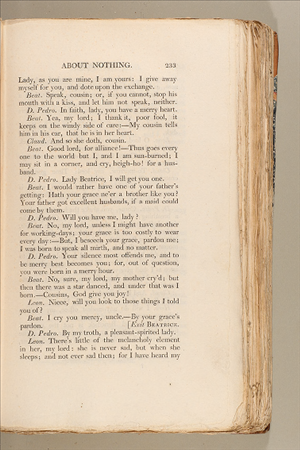 ABOUT NOTHING. 233
Lady, as you are mine, I am yours: I give away
myself for you, and dote upon the exchange.
Beat. Speak, cousin; or, if you cannot, stop his
mouth with a kiss, and let him not speak, neither.
D. Pedro. In faith, lady, you have a merry heart.
Beat. Yea, my lord; I thank it, poor fool, it
keeps on the windy side of care:—My cousin tells
him in his ear, that he is in her heart.
Claud. And so she doth, cousin.
Beat. Good lord, for alliance!—Thus goes every
one to the world but I, and I am sun-burned; I
may sit in a corner, and cry, heigh-ho! for a hus-
band.
D. Pedro. Lady Beatrice, I will get you one.
Beat. I would rather have one of your father's
getting: Hath your grace ne'er a brother like you?
Your father got excellent husbands, if a maid could
come by them.
D. Pedro. Will you have me, lady?
Beat. No, my lord, unless I might have another
for working-days; your grace is too costly to wear
every day:—But, I beseech your grace, pardon me;
I was born to speak all mirth, and no matter.
D. Pedro. Your silence most offends me, and to
be merry best becomes you; for, out of question,
you were born in a merry hour.
Beat. No, sure, my lord, my mother cry'd; but
then there was a star danced, and under that was I
born.—Cousins, God give you joy!
Leon. Niece, will you look to those things I told
you of?
Beat. I cry you mercy, uncle.—By your grace's
pardon. [Exit BEATRICE.
D. Pedro. By my troth, a pleasant-spirited lady.
Leon. There's little of the melancholy element
in her, my lord: she is never sad, but when she
sleeps; and not ever sad then; for I have heard my